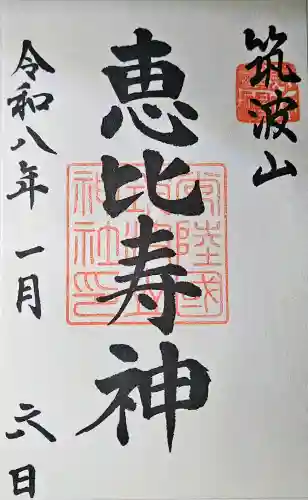 筑波山
恵比寿神
令和八年 一月 六日
常陸國
筑波山
神社印